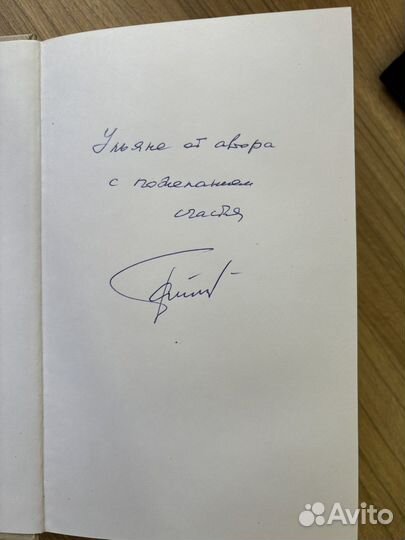 Ульяне от автора
с пожеланием
счастья
Avito